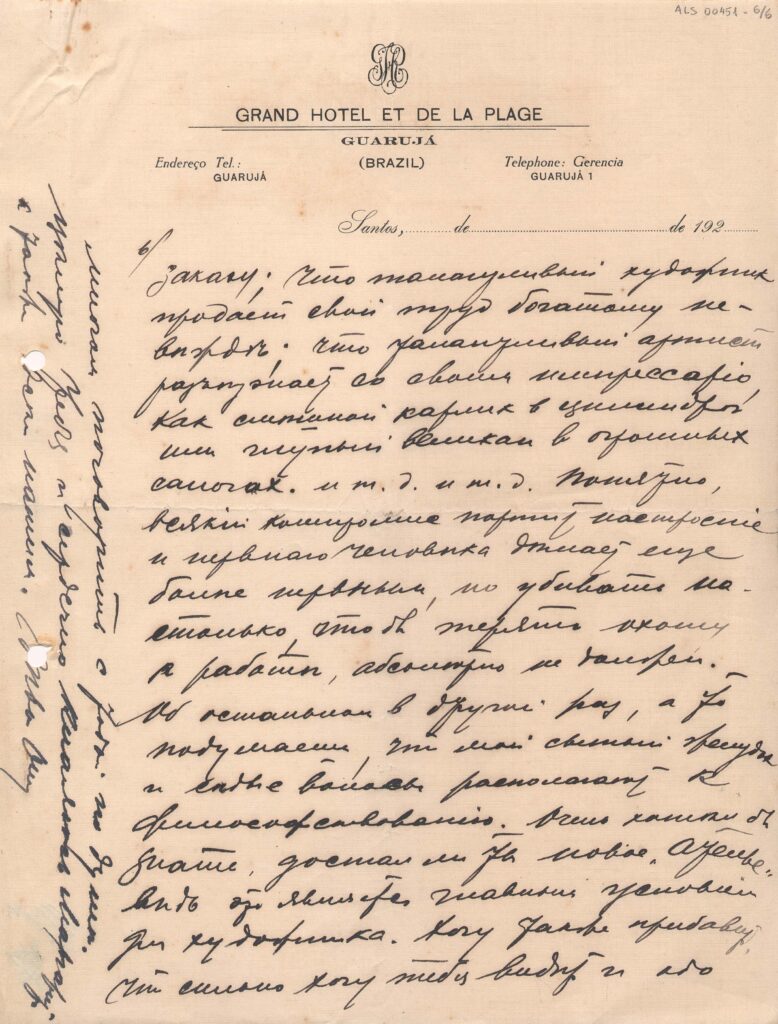 ALS D0451 - 6/6
GRAND HOTEL ET DE LA PLAGE
GUARUJÁ
(BRAZIL)
Endereço Tel.:
GUARUJÁ
Telephone: Gerencia
GUARUJÁ 1
Santos, de de 192
6/
заказу; что талантливый художник
продает свой труд богатому не-
вѣждѣ; что талантливый артист
разъѣзжает со своим импрессаріо,
как смѣшной карлик в цилиндрѣ
или глупый великан в огромных
сапогах. и т. д. и т. д. Понятно,
всякій компромис портит настроеніе
и нервнаго человѣка дѣлает еще
болѣе нервным, но убивать на-
столько, чтобъ терять охоту
к работѣ, абсолютно не должен.
Об остальном в другой раз, а то
подумаешь, что мой сытый желудок
и сѣдые волосы располагают к
философствованію. Очень хотѣл бъ
знать, достал ли ты новое „Ателье"
вѣдь это является главным условіем
для художника. Хочу также прибавить,
что сильно хочу тебя видѣть и обо
многом поговорить с тобой по душам.
Цѣлую тебя и сердечно кланяюсь
к также всѣм нашим.